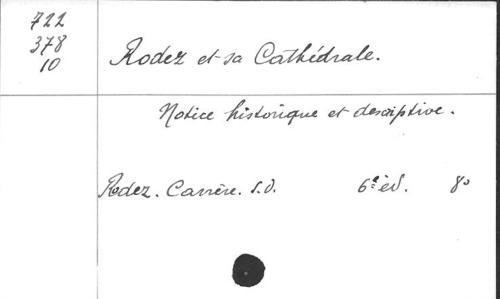 722
378
10
Rodez et sa Cathédrale.
Notice historique et descriptive.
Rodez. Carrère. S.D. 6e éd. 8o